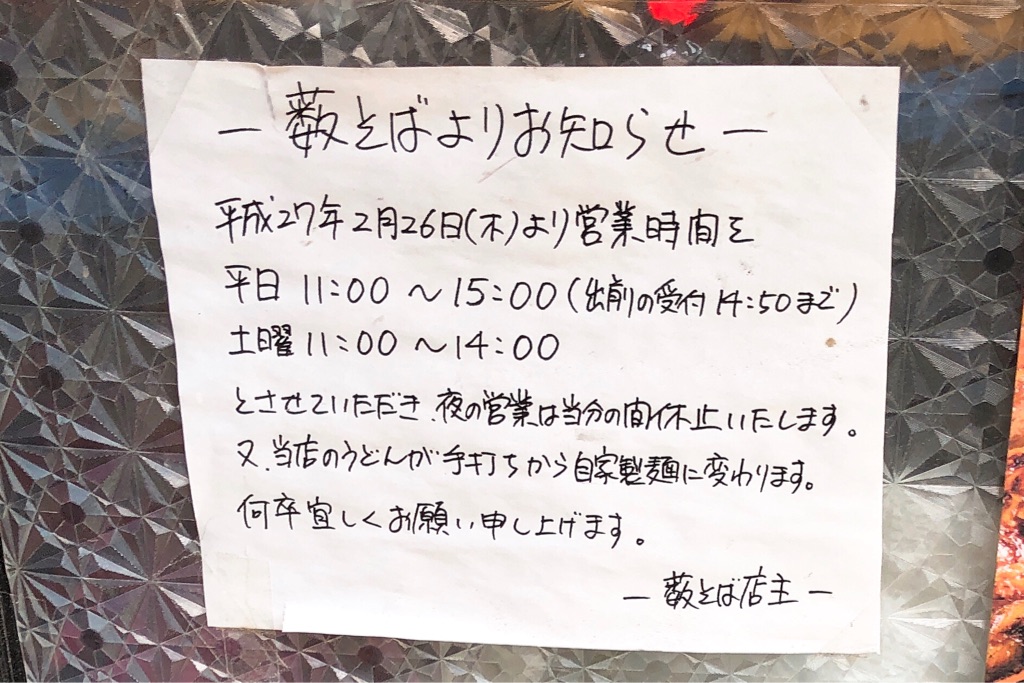 ー 藪そばよりお知らせ ー
平成27年2月26日(木)より営業時間を
平日 11:00 〜 15:00 (出前の受付 14:50まで)
土曜 11:00 〜 14:00
とさせていただき、夜の営業は当分の間休止いたします。
又、当店のうどんが手打ちから自家製麺に変わります。
何卒宜しくお願い申し上げます。
ー 藪そば店主 ー